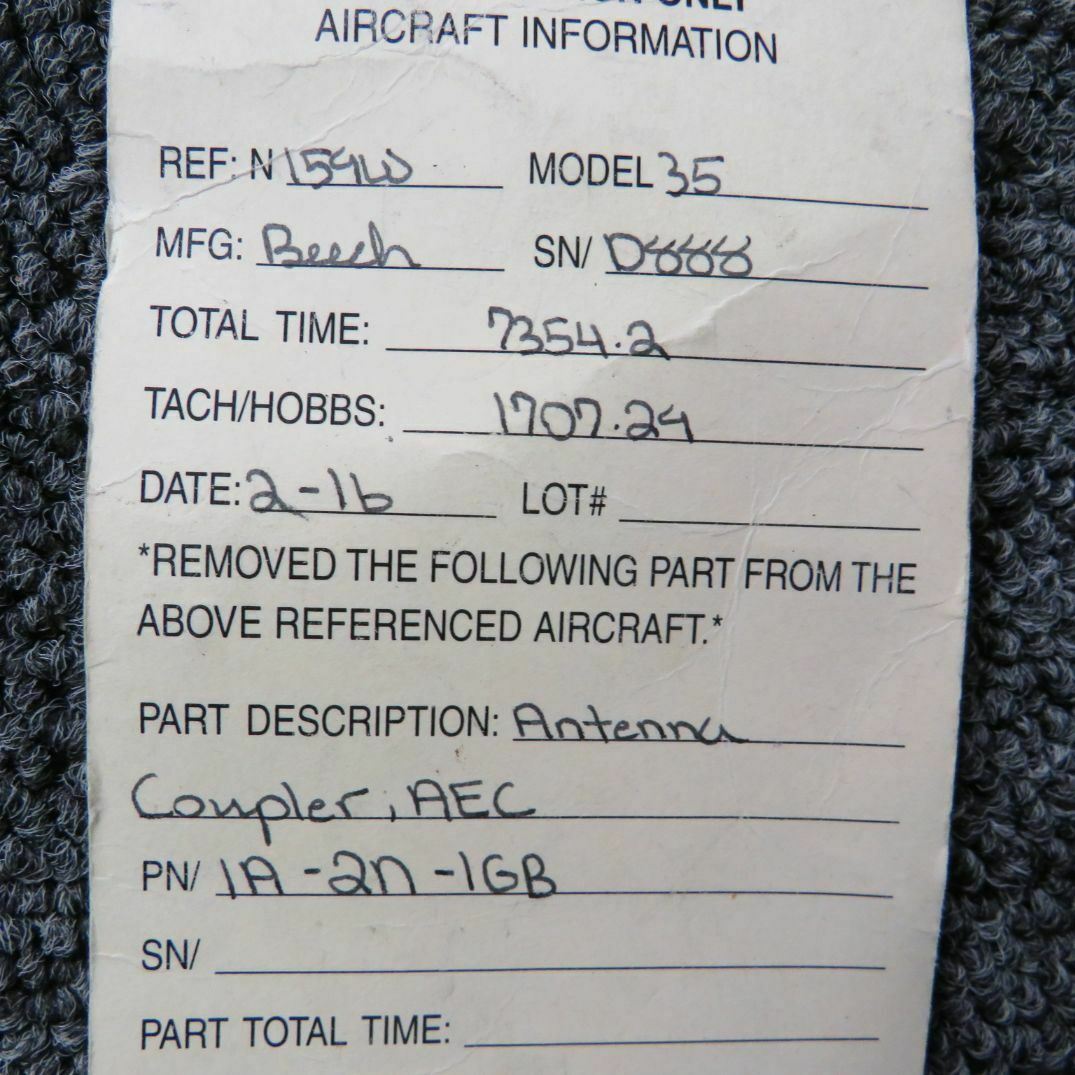 ONLY
AIRCRAFT INFORMATION
REF: N 159LW MODEL 35
MFG: Beech SN/ D888
TOTAL TIME: 7354.2
TACH/HOBBS: 1707.24
DATE: 2-16 LOT#
*REMOVED THE FOLLOWING PART FROM THE
ABOVE REFERENCED AIRCRAFT.*
PART DESCRIPTION: Antenna
Coupler, AEC
PN/ 1A-2N-1GB
SN/
PART TOTAL TIME: